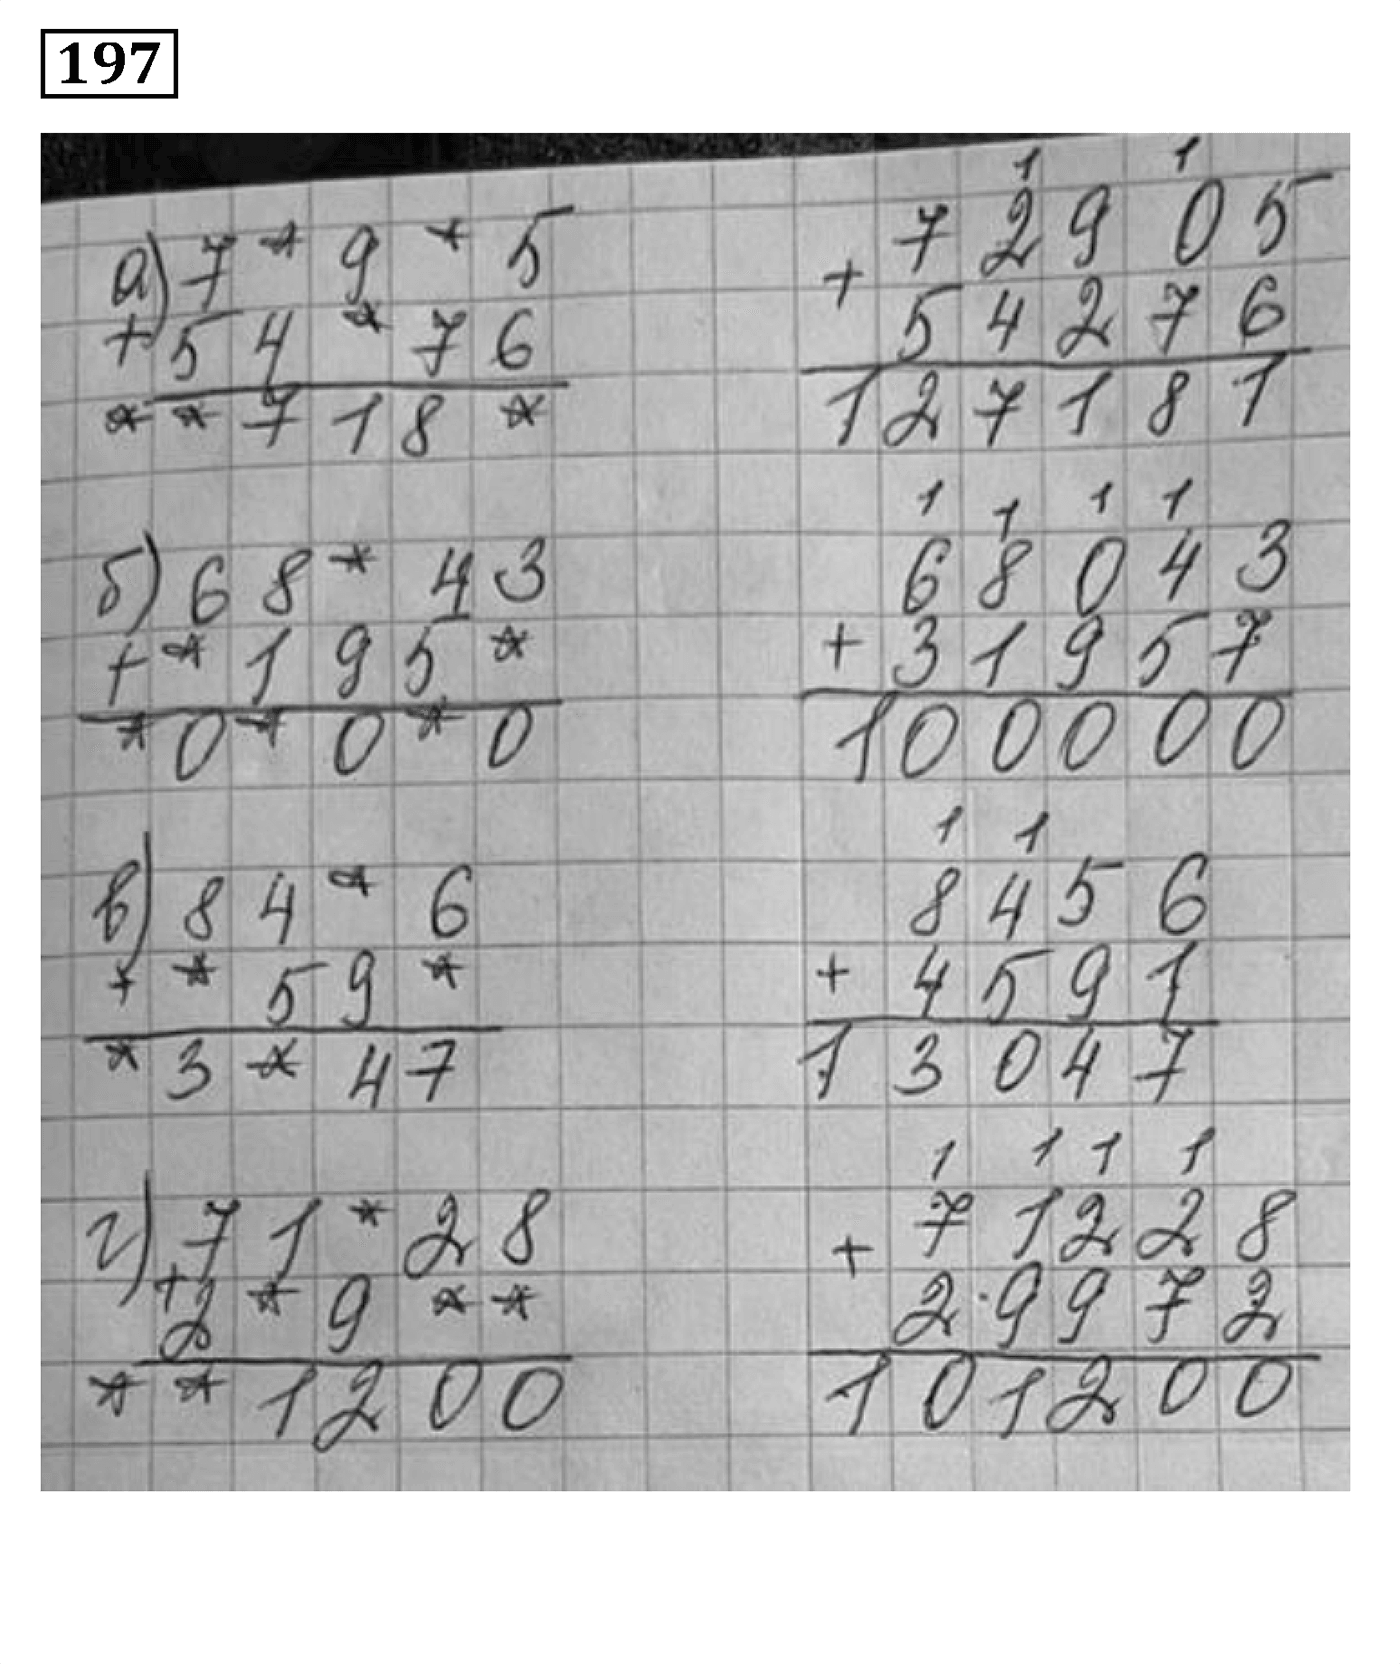 197
а) 7 * 9 * 5
+ 5 4 * 7 6
* * 7 1 8 *
1 1
7 2 9 0 5
+ 5 4 2 7 6
1 2 7 1 8 1
б) 6 8 * 4 3
+ * 1 9 5 *
* 0 * 0 * 0
1 1 1 1
6 8 0 4 3
+ 3 1 9 5 7
1 0 0 0 0 0
в) 8 4 * 6
+ * 5 9 *
* 3 * 4 7
1 1
8 4 5 6
+ 4 5 9 1
1 3 0 4 7
г) 7 1 * 2 8
+ 2 * 9 * *
* * 1 2 0 0
1 1 1 1
7 1 2 2 8
+ 2 9 9 7 2
1 0 1 2 0 0